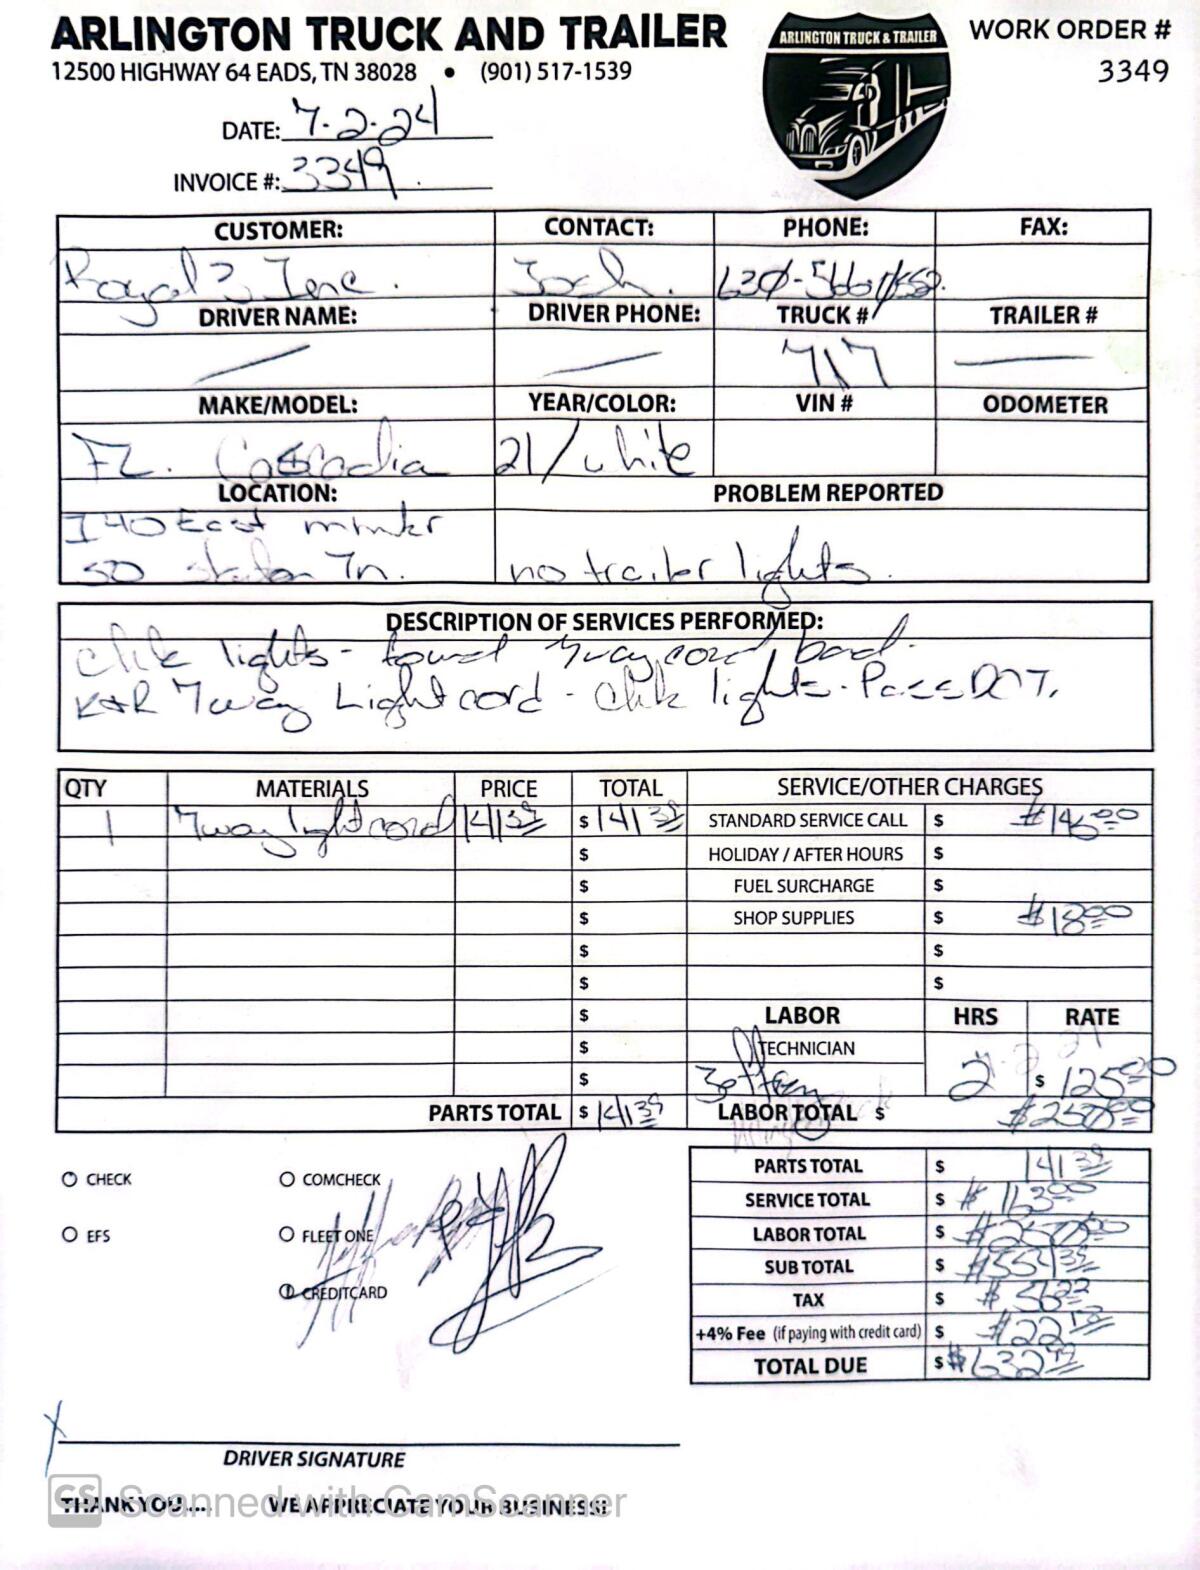 ARLINGTON TRUCK AND TRAILER
12500 HIGHWAY 64 EADS, TN 38028 • (901) 517-1539
ARLINGTON TRUCK & TRAILER
WORK ORDER #
3349
DATE: 7-2-24
INVOICE #: 3349
CUSTOMER: CONTACT: PHONE: FAX:
Royal 3 Inc. 630-566-
DRIVER NAME: DRIVER PHONE: TRUCK # TRAILER #
717
MAKE/MODEL: YEAR/COLOR: VIN # ODOMETER
FL. Cascadia 21/white
LOCATION: PROBLEM REPORTED
I40 East
50 Tn. no trailer lights.
DESCRIPTION OF SERVICES PERFORMED:
Chk lights - found 7way cord bad.
R&R 7way Light cord - Chk lights. Pass DOT.
QTY MATERIALS PRICE TOTAL SERVICE/OTHER CHARGES
1 7way light cord 141 39 $ 141 39 STANDARD SERVICE CALL $ $145 00
$ HOLIDAY / AFTER HOURS $
$ FUEL SURCHARGE $
$ SHOP SUPPLIES $ $18 00
$ $
$ $
$ LABOR HRS RATE
$ TECHNICIAN
$ 2 $ 125 00
PARTS TOTAL $ 141 39 LABOR TOTAL $ $250 00
CHECK COMCHECK
EFS FLEET ONE
CREDITCARD
PARTS TOTAL $ 141 39
SERVICE TOTAL $ $ 163 00
LABOR TOTAL $ $250 00
SUB TOTAL $ $554 39
TAX $ $
+4% Fee (if paying with credit card) $ $22 18
TOTAL DUE $ $632
X
DRIVER SIGNATURE
THANK YOU.... WE APPRECIATE YOUR BUSINESS!
CS Scanned with CamScanner